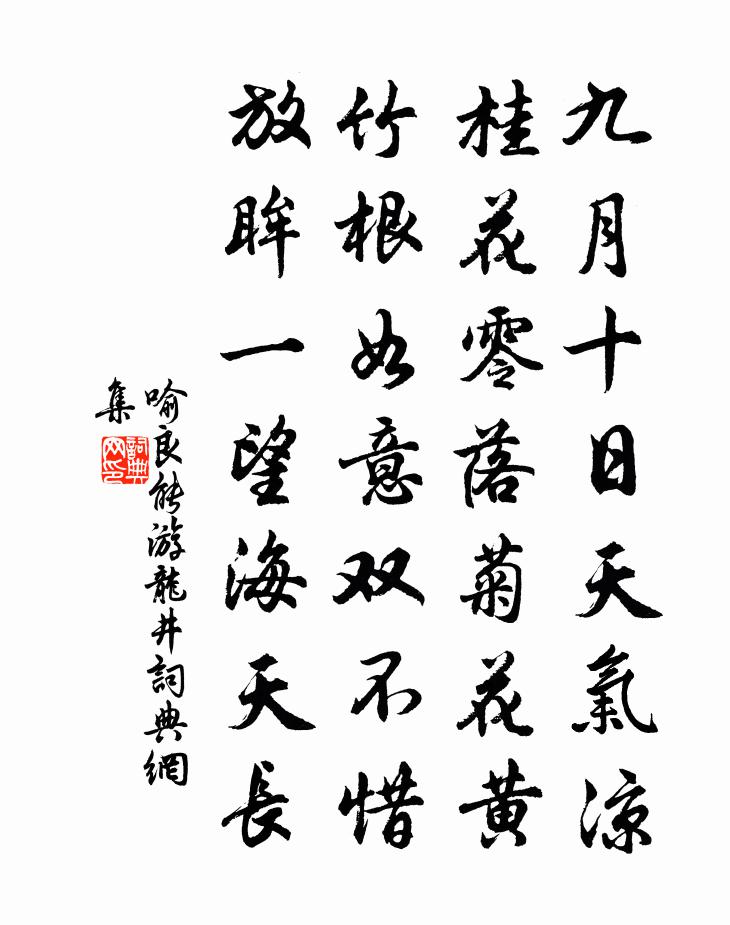 九月十日天氣涼
桂花零落菊花黄
竹根如意双不惜
放眸一望海天長
喻良能游龍井詞典網
集
詞典
网印